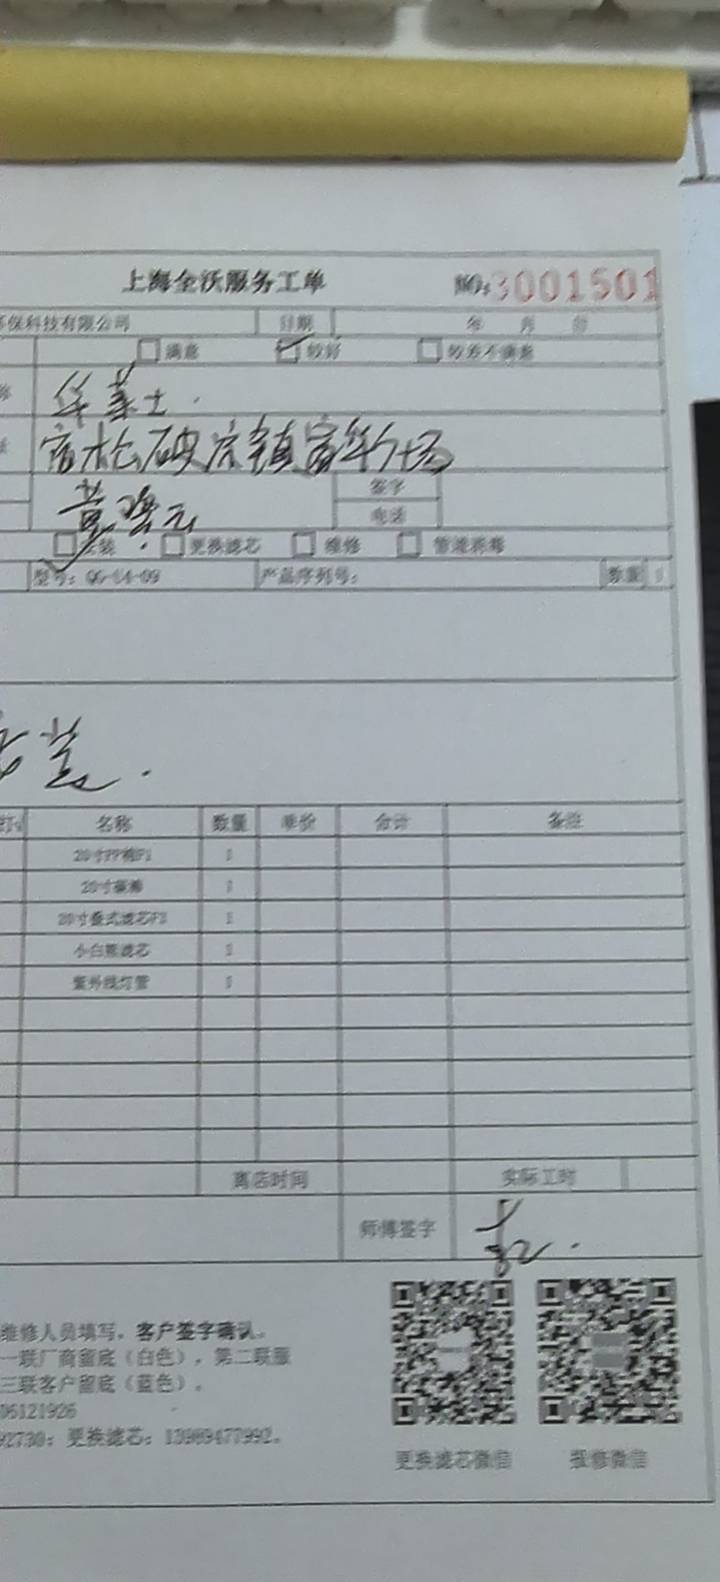 上海全沃服务工单 NO:3001501
环保科技有限公司 日期 年 月 日
满意 较好 较差不满意
华莱士
宿松破凉镇富华广场
签字
电话
安装 更换滤芯 维修 管道消毒
型号: 产品序列号: 数量
安装.
名称 数量 单价 合计 备注
20寸PP棉F1 1
20寸碳棒 1
20寸叠式滤芯F3 1
小白熊滤芯 1
紫外线灯管 1
离店时间 实际工时
师傅签字
维修人员填写,客户签字确认。
一联厂商留底(白色),第二联服
三联客户留底(蓝色)。
06121926
92730;更换滤芯:13909477992。
更换滤芯微信 报修微信